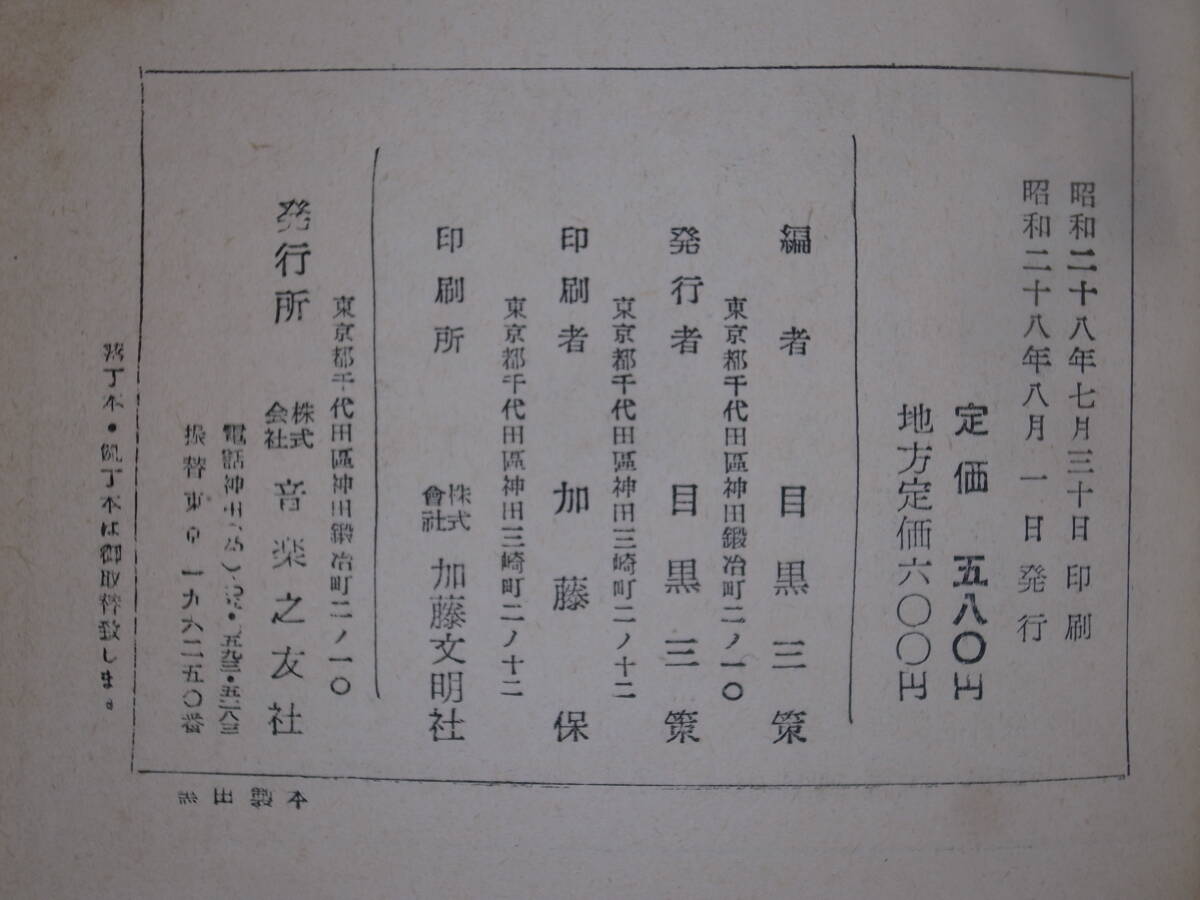 昭和二十八年七月三十日 印刷
昭和二十八年八月 一 日 発行
定価 五八〇円
地方定価六〇〇円
編者 目黒三策
東京都千代田區神田鍛冶町二ノ一〇
発行者 目黒三策
東京都千代田區神田三崎町二ノ十二
印刷者 加藤保
東京都千代田區神田三崎町二ノ十二
印刷所 株式會社 加藤文明社
東京都千代田區神田鍛冶町二ノ一〇
発行所 株式会社 音楽之友社
電話神田
振替東京一九六二五〇番
落丁本・乱丁本は御取替致します。
田製本